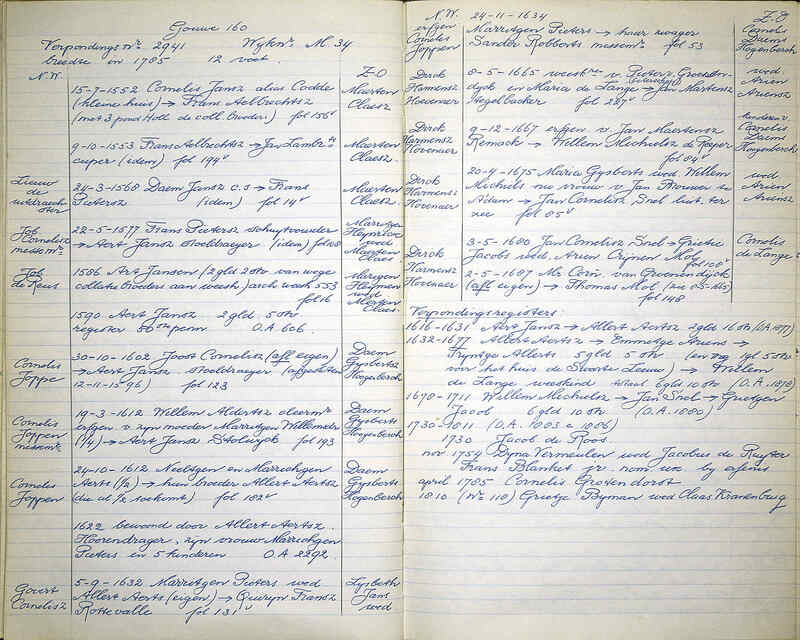 Gouwe 160
Verpondingsnr. 2941 Wijknr. M. 34
breedte in 1785 12 voet.
N.W. Z-O
15-7-1552 Cornelis Jansz alias Codde Maerten
(kleine huis) → Frans Aelbrechtsz Claesz.
(met 3 pond Holl. de coll. broeder) fol 156v
9-10-1553 Frans Aelbrechtsz → Jan Lambr. Maerten
cuper (idem) fol 199v Claesz.
Leeuw 24-3-1568 Daem Jansz c.s → Frans Maerten
de Pietersz (idem) fol 14v Claesz.
Job 22-5-1577 Frans Pietersz Schuytvoerder Marritgen
Cornelisz → Aert Jansz stoeldraeyer (idem) fol 08 Heynricx
wed
Maerten
Claes
Job 1586 Aert Jansen (2 gld 2 st van wege Marigen
de Reus collatie broeders aan weesh) arch. weesh 553 Heymen
fol 6 wed
Claesz.
1590 Aert Jansz 2 gld. 5 st
register 80ste penn O.A 606.
Cornelis 30-10-1602 Joost Cornelisz (aff eigen) Daem
Joppe → Aert Jansz. stoeldraeyer Gysbertsz
12-11-1596) fol 123 Hogenberch
Cornelis 19-3-1612 Willem Aldertsz Daem
Joppen erfgen v zijn moeder Marritgen Willemsdr Gysberts
(1/4) → Aert Jansz fol 193 Hogenberch
Cornelis 24-10-1612 Neeltgen en Marrichgen Daem
Joppen Aerts (1/2) → hun broeder Allert Aertsz Gysberts
(die al 1/2 toekomt) fol 182v Hogenberch
1622 bewoond door Allert Aertsz.
Hoorendrager, zijn vrouw Marrichgen
Pieters en 5 kinderen O.A 2292.
Govert 5-9-1632 Marritgen Pieters wed Lysbeth
Cornelisz Allert Aerts (eigen) → Quiryn Fransz Jans
Rottevalle fol 131v wed
N.W. 24-11-1634 Z-O
erfgen Marritgen Pieters → haar zwager Cornelis
Cornelis Sander Robberts fol 53 Daems
Joppen Hogenberch
Dirck 8-5-1665 v. Pieter v Groenen- wed
Harmensz dyck en Maria de Lange → Jan Maertensz Arien
Hovenaer Hegelbacker fol 287v Ariensz
Dirck 9-12-1667 erfgen v Jan Maertensz kinderen v.
Harmensz Remack → Willem Michielsz de Raeper Cornelis
Hovenaer fol 84v Daems
Hogenberch
Dirck 20-4-1675 Maria Gysberts wed Willem wed
Harmens Michiels nu vrouw v Jan Brouwer te Arien
Hovenaer A'dam → Jan Cornelisz Snel luit. ter Ariensz
zee fol 85v
Dirck 3-5-1680 Jan Cornelisz Snel → Grietie Cornelis
Harmensz Jacobs wed. Arien Crijnen Mol fol 100v de Lange
Hovenaer 2-5-1687 Mr Corn. van Groenendijck
(aff eigen) → Thomas Mol
fol 148
Verpondingsregisters:
1616-1631 Aert Jansz → Allert Aertsz 2 gld 16 st (O.A 1877)
1632-1677 Allert Aertsz → Emmetge Ariens →
Tryntge Allerts 5 gld 5 st (en nog 1 gld 5 st
voor het huis de Swarte Leeuw) → Willem
de Lange weeskind totaal 6 gld 10 st (O.A. 1878)
1678-1711 Willem Michielsz → Jan Snel → Grietgen
Jacob 6 gld 10 st (O.A. 1880)
1730-1811 (O.A. 1883 e 1886)
1730 Jacob de Roos.
nov 1754 Dyna Vermeulen wed Jacobus de Ruyter
Frans Blanket jr. nom. ux. by erfenis
april 1785 Cornelis Grotendorst
1810 (no 110) Grietje Byman wed Claas Kranenburg